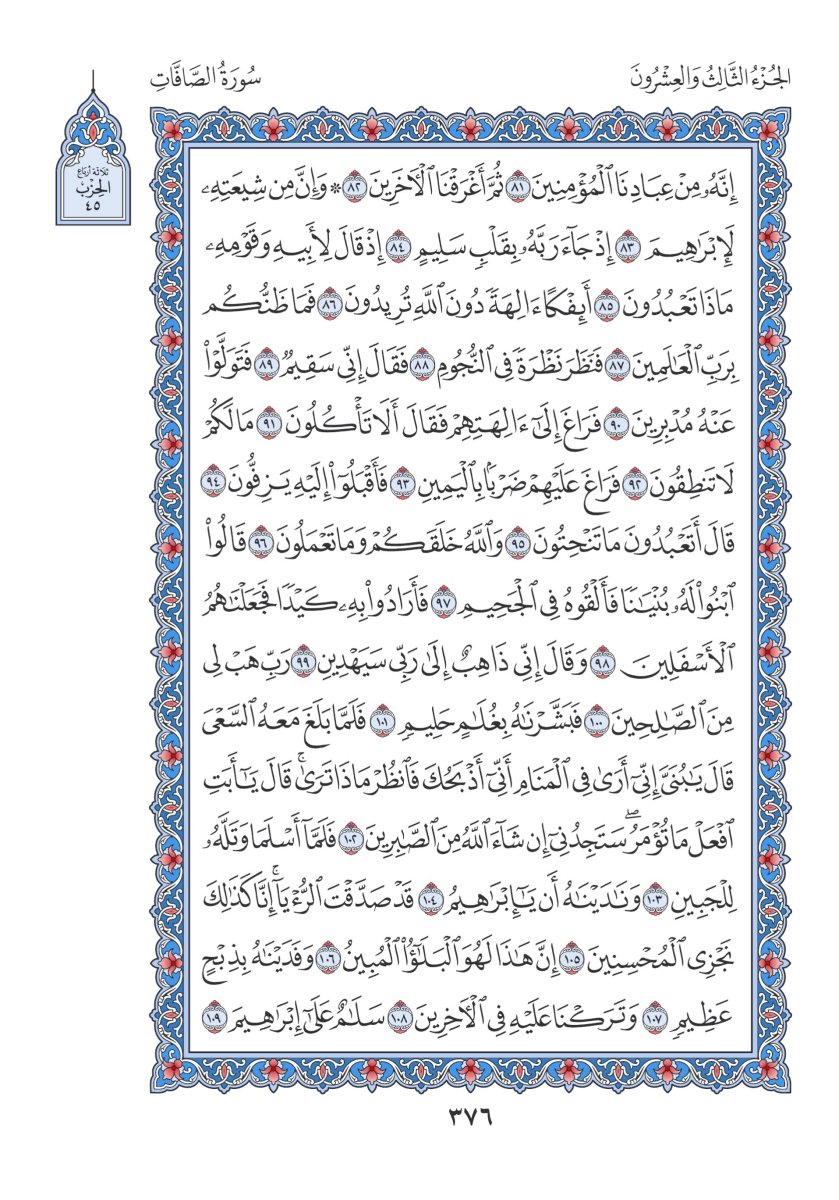 الجُزْءُ الثَّالِثُ وَالعِشْرُونَ
سُورَةُ الصَّافَّاتِ
ثلاثة أرباع
الحِزْب
٤٥
إِنَّهُۥ مِنْ عِبَادِنَا ٱلْمُؤْمِنِينَ ٨١ ثُمَّ أَغْرَقْنَا ٱلْأٓخَرِينَ ٨٢ ۞ وَإِنَّ مِن شِيعَتِهِۦ
لَإِبْرَٰهِيمَ ٨٣ إِذْ جَآءَ رَبَّهُۥ بِقَلْبٖ سَلِيمٍ ٨٤ إِذْ قَالَ لِأَبِيهِ وَقَوْمِهِۦ
مَاذَا تَعْبُدُونَ ٨٥ أَئِفْكًا ءَالِهَةٗ دُونَ ٱللَّهِ تُرِيدُونَ ٨٦ فَمَا ظَنُّكُم
بِرَبِّ ٱلْعَٰلَمِينَ ٨٧ فَنَظَرَ نَظْرَةٗ فِي ٱلنُّجُومِ ٨٨ فَقَالَ إِنِّي سَقِيمٞ ٨٩ فَتَوَلَّوْاْ
عَنْهُ مُدْبِرِينَ ٩٠ فَرَاغَ إِلَىٰٓ ءَالِهَتِهِمْ فَقَالَ أَلَا تَأْكُلُونَ ٩١ مَا لَكُمْ
لَا تَنطِقُونَ ٩٢ فَرَاغَ عَلَيْهِمْ ضَرْبَۢا بِٱلْيَمِينِ ٩٣ فَأَقْبَلُوٓاْ إِلَيْهِ يَزِفُّونَ ٩٤
قَالَ أَتَعْبُدُونَ مَا تَنْحِتُونَ ٩٥ وَٱللَّهُ خَلَقَكُمْ وَمَا تَعْمَلُونَ ٩٦ قَالُواْ
ٱبْنُواْ لَهُۥ بُنْيَٰنٗا فَأَلْقُوهُ فِي ٱلْجَحِيمِ ٩٧ فَأَرَادُواْ بِهِۦ كَيْدٗا فَجَعَلْنَٰهُمُ
ٱلْأَسْفَلِينَ ٩٨ وَقَالَ إِنِّي ذَاهِبٌ إِلَىٰ رَبِّي سَيَهْدِينِ ٩٩ رَبِّ هَبْ لِي
مِنَ ٱلصَّٰلِحِينَ ١٠٠ فَبَشَّرْنَٰهُ بِغُلَٰمٍ حَلِيمٖ ١٠١ فَلَمَّا بَلَغَ مَعَهُ ٱلسَّعْيَ
قَالَ يَٰبُنَيَّ إِنِّيٓ أَرَىٰ فِي ٱلْمَنَامِ أَنِّيٓ أَذْبَحُكَ فَٱنظُرْ مَاذَا تَرَىٰۚ قَالَ يَٰٓأَبَتِ
ٱفْعَلْ مَا تُؤْمَرُۖ سَتَجِدُنِيٓ إِن شَآءَ ٱللَّهُ مِنَ ٱلصَّٰبِرِينَ ١٠٢ فَلَمَّآ أَسْلَمَا وَتَلَّهُۥ
لِلْجَبِينِ ١٠٣ وَنَٰدَيْنَٰهُ أَن يَٰٓإِبْرَٰهِيمُ ١٠٤ قَدْ صَدَّقْتَ ٱلرُّءْيَآۚ إِنَّا كَذَٰلِكَ
نَجْزِي ٱلْمُحْسِنِينَ ١٠٥ إِنَّ هَٰذَا لَهُوَ ٱلْبَلَٰٓؤُاْ ٱلْمُبِينُ ١٠٦ وَفَدَيْنَٰهُ بِذِبْحٍ
عَظِيمٖ ١٠٧ وَتَرَكْنَا عَلَيْهِ فِي ٱلْأٓخِرِينَ ١٠٨ سَلَٰمٌ عَلَىٰٓ إِبْرَٰهِيمَ ١٠٩
٣٧٦